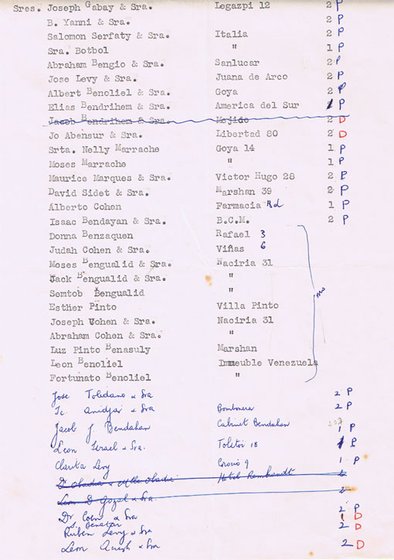 Sres. Joseph Gabay & Sra. Legazpi 12 2 P
B. Yanni & Sra. " 2 P
Salomon Serfaty & Sra. Italia 2 P
Sra. Botbol " 1 P
Abraham Bengio & Sra. Sanlucar 2 P
Jose Levy & Sra. Juana de Arco 2 P
Albert Benoliel & Sra. Goya 2 P
Elias Bendrihem & Sra. America del Sur 1 P
Jacob Bendrihem & Sra. Mejido 2 D
Jo Abensur & Sra. Libertad 80 2 D
Srta. Nelly Marrache Goya 14 1 P
Moses Marrache " 1 P
Maurice Marques & Sra. Victor Hugo 28 2 P
David Sidet & Sra. Marshan 39 2 P
Alberto Cohen Farmacia Rd 1 P
Isaac Bendayan & Sra. B.C.M. 2 P
Donna Benzaquen Rafael 3
Judah Cohen & Sra. Viñas 6
Moses Bengualid & Sra. Naciria 31
Jack Bengualid & Sra. "
Semtob Bengualid "
Esther Pinto Villa Pinto
Joseph Cohen & Sra. Naciria 31
Abraham Cohen & Sra. "
Luz Pinto Benasuly Marshan
Leon Benoliel Immeuble Venezuela
Fortunato Benoliel "
Jose Toledano & Sra 2 P
& Sra 2 P
Jacob J Bendahan Cabinet Bendahan 1 P
Leon Israel & Sra. 18 P
Levy 9 1 P
Hotel Rembrandt
Leon D & Sra 2
Dr Coen & Sra 2 P
1 D
Ruben Levy & Sra 2 D
Leon & Sra 2 D